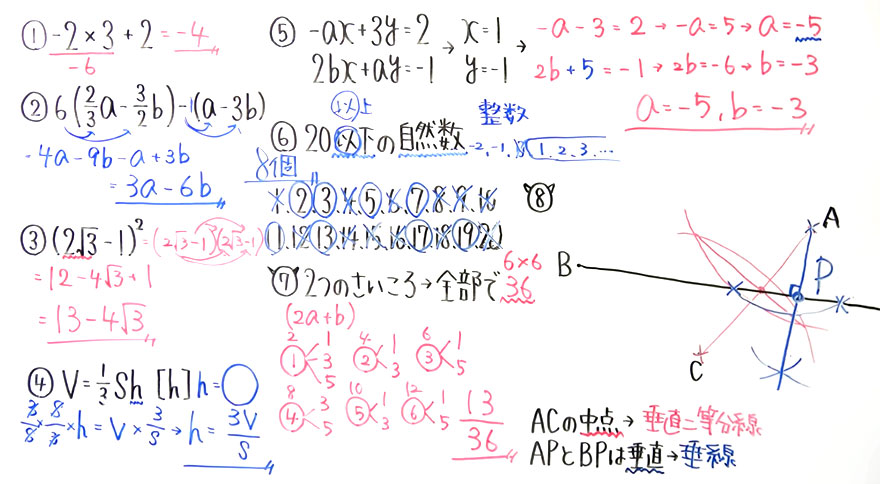 ① -2×3+2=-4
-6
② 6(2/3a-3/2b)-1(a-3b)
=4a-9b-a+3b
=3a-6b
③ (2√3-1)²=(2√3-1)(2√3-1)
=12-4√3+1
=13-4√3
④ V=1/3Sh [h] h=○
3/S×S/3×h=V×3/S→h=3V/S
⑤ -ax+3y=2 → x=1 → -a-3=2→-a=5→a=-5
2bx+ay=-1 y=-1 2b+5=-1→2b=-6→b=-3
a=-5, b=-3
以上 整数
⑥ 20以下の自然数 -2,-1,0,1,2,3,…
8個
1.2.3.4.5.6.7.8.9.10
11.12.13.14.15.16.17.18.19.20
⑦ 2つのさいころ→全部で36
6×6
(2a+b)
2 1 4 1 6 1
① 3 ② 3 ③ 5
5
8 3 10 1 12 1
④ 5 ⑤ 3 ⑥ 5
13/36
⑧
A
B
P
C
ACの中点→垂直二等分線
APとBPは垂直→垂線